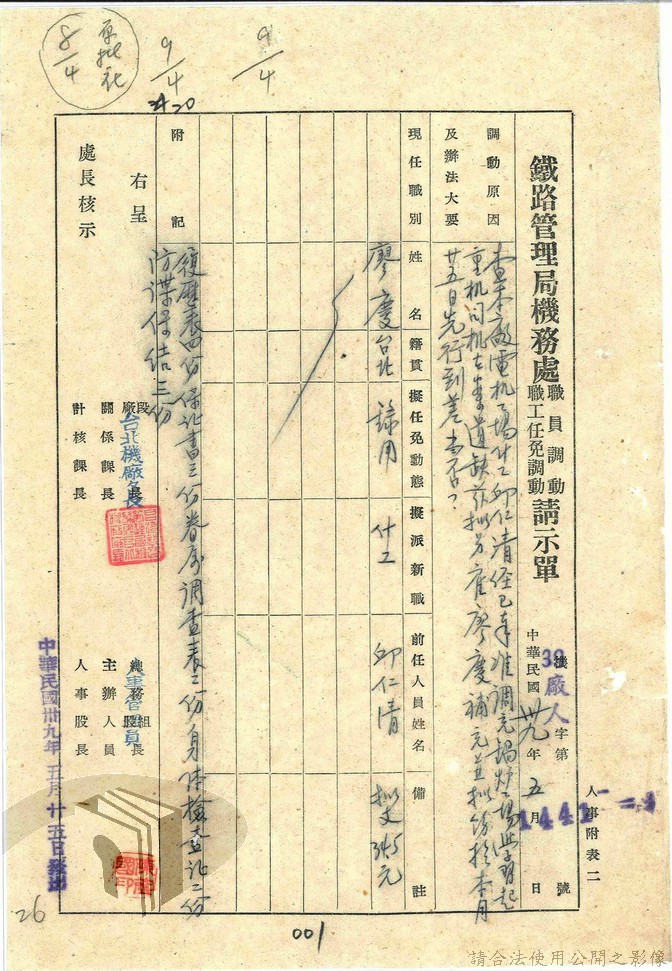 人事附表二
鐵路管理局機務處職員調動職工任免調動請示單
39廠人字第1441號
中華民國卅九年五月 日
調動原因及辦法大要
查本廠電机場什工邱仁清經已奉准調充鍋炉場學習起
重机司机在案遺缺茲擬另雇廖慶補充並擬飭於本月
廿五日先行到差當否?
現任職別 姓名 籍貫 擬任免動態 擬派新職 前任人員姓名 備註
廖慶 台北 錄用 什工 邱仁清 擬支 元
附記
履歷表四份保証書三份眷屬調查表二份身体檢查証二份
防諜保結三份
右呈
處長核示
段廠長 台北機廠長
關係課長
計核課長
總務組股長 人事管理員
主辦人員
人事股長
中華民國卅九年五月廿五日發出
原批
8/4
9/4
9/4
26
001
請合法使用公開之影像